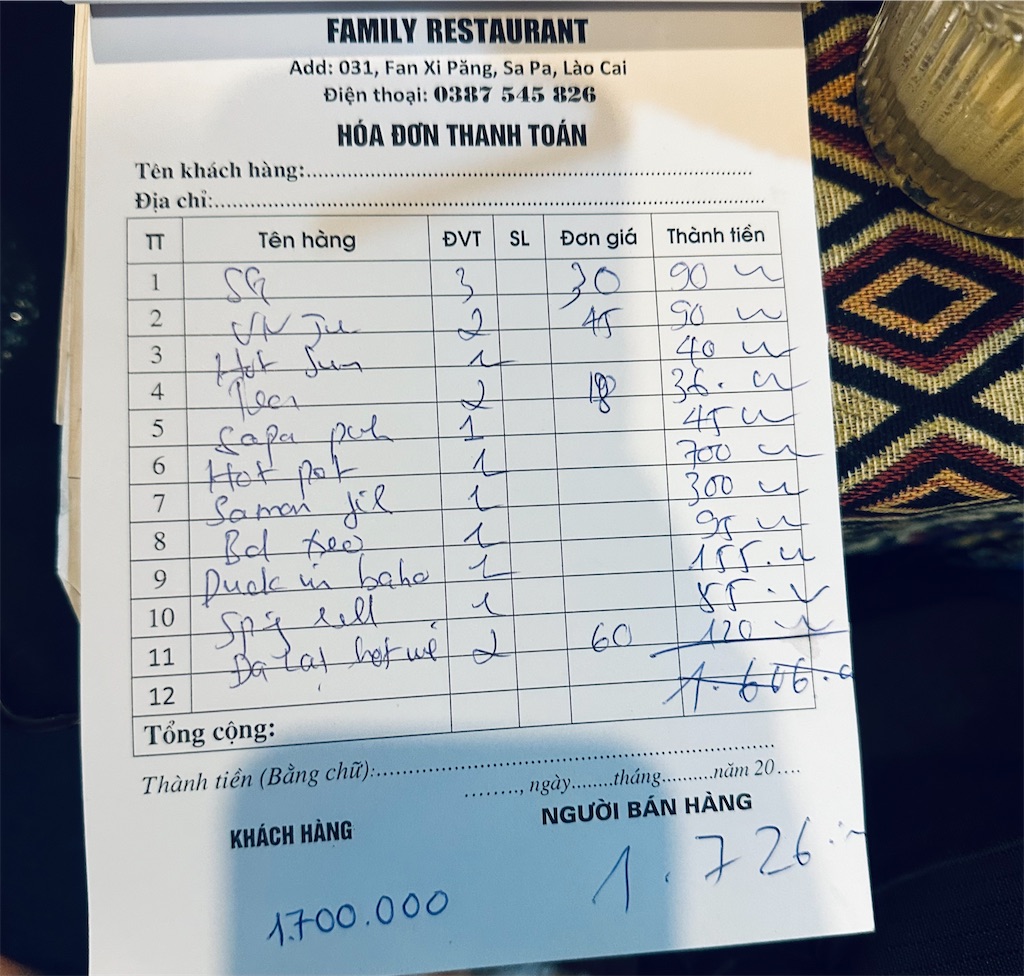 FAMILY RESTAURANT
Add: 031, Fan Xi Păng, Sa Pa, Lào Cai
Điện thoại: 0387 545 826
HÓA ĐƠN THANH TOÁN
Tên khách hàng:
Địa chỉ:
TT Tên hàng ĐVT SL Đơn giá Thành tiền
1 SG 3 30 90
2 2 45 90
3 Hot 1 40
4 2 18 36.
5 Sapa 1 45
6 Hot pot 1 700
7 Samon 1 300
8 xeo 1 95
9 Duck in 1 155.
10 1 85.
11 Đa Lat 2 60 120
12 1.606.
Tổng cộng:
Thành tiền (Bằng chữ):
........, ngày........tháng..........năm 20....
KHÁCH HÀNG NGƯỜI BÁN HÀNG
1.726.
1.700.000